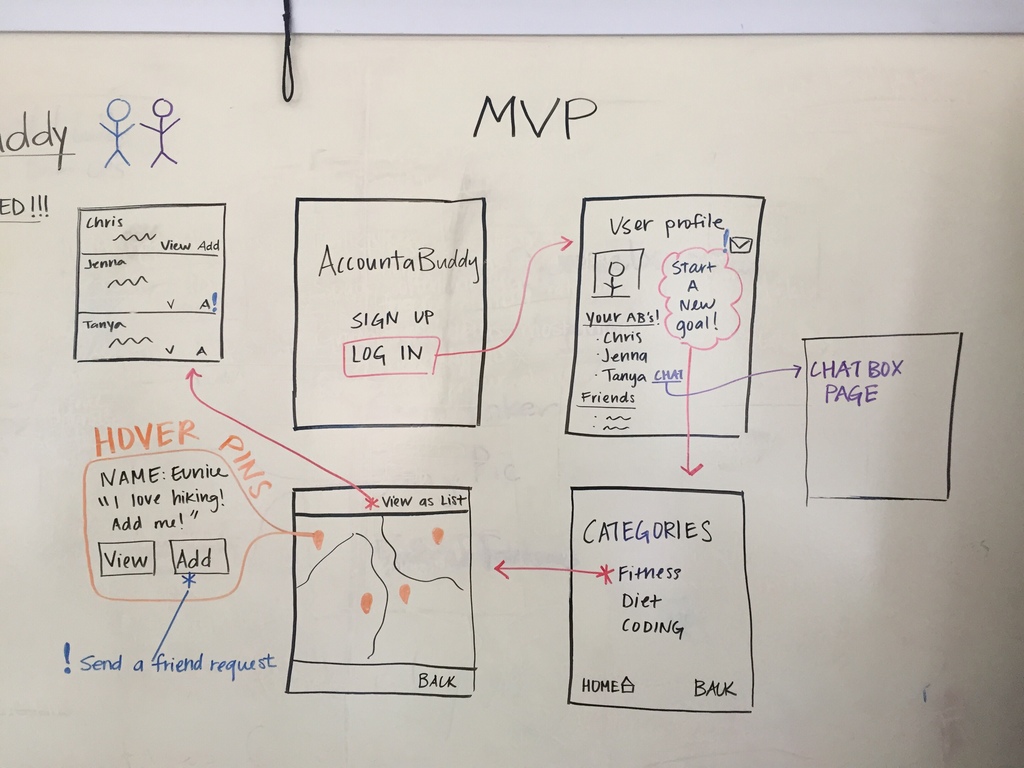 MVP
Chris
View Add
Jenna
V A!
Tanya
V A
AccountaBuddy
SIGN UP
LOG IN
User profile
!
Start
A
New
goal!
Your AB's!
· Chris
· Jenna
· Tanya CHAT
Friends
CHAT BOX
PAGE
HOVER PINS
NAME: Eunice
"I love hiking!
Add me!"
View Add
! Send a friend request
View as List
BACK
CATEGORIES
Fitness
Diet
CODING
HOME BACK